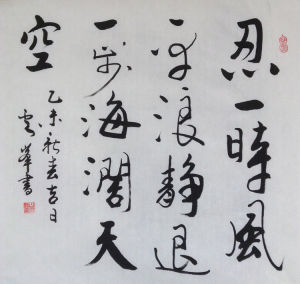 忍一時風
平浪静退
一步海濶天
空
乙未秋嘉吉日
书